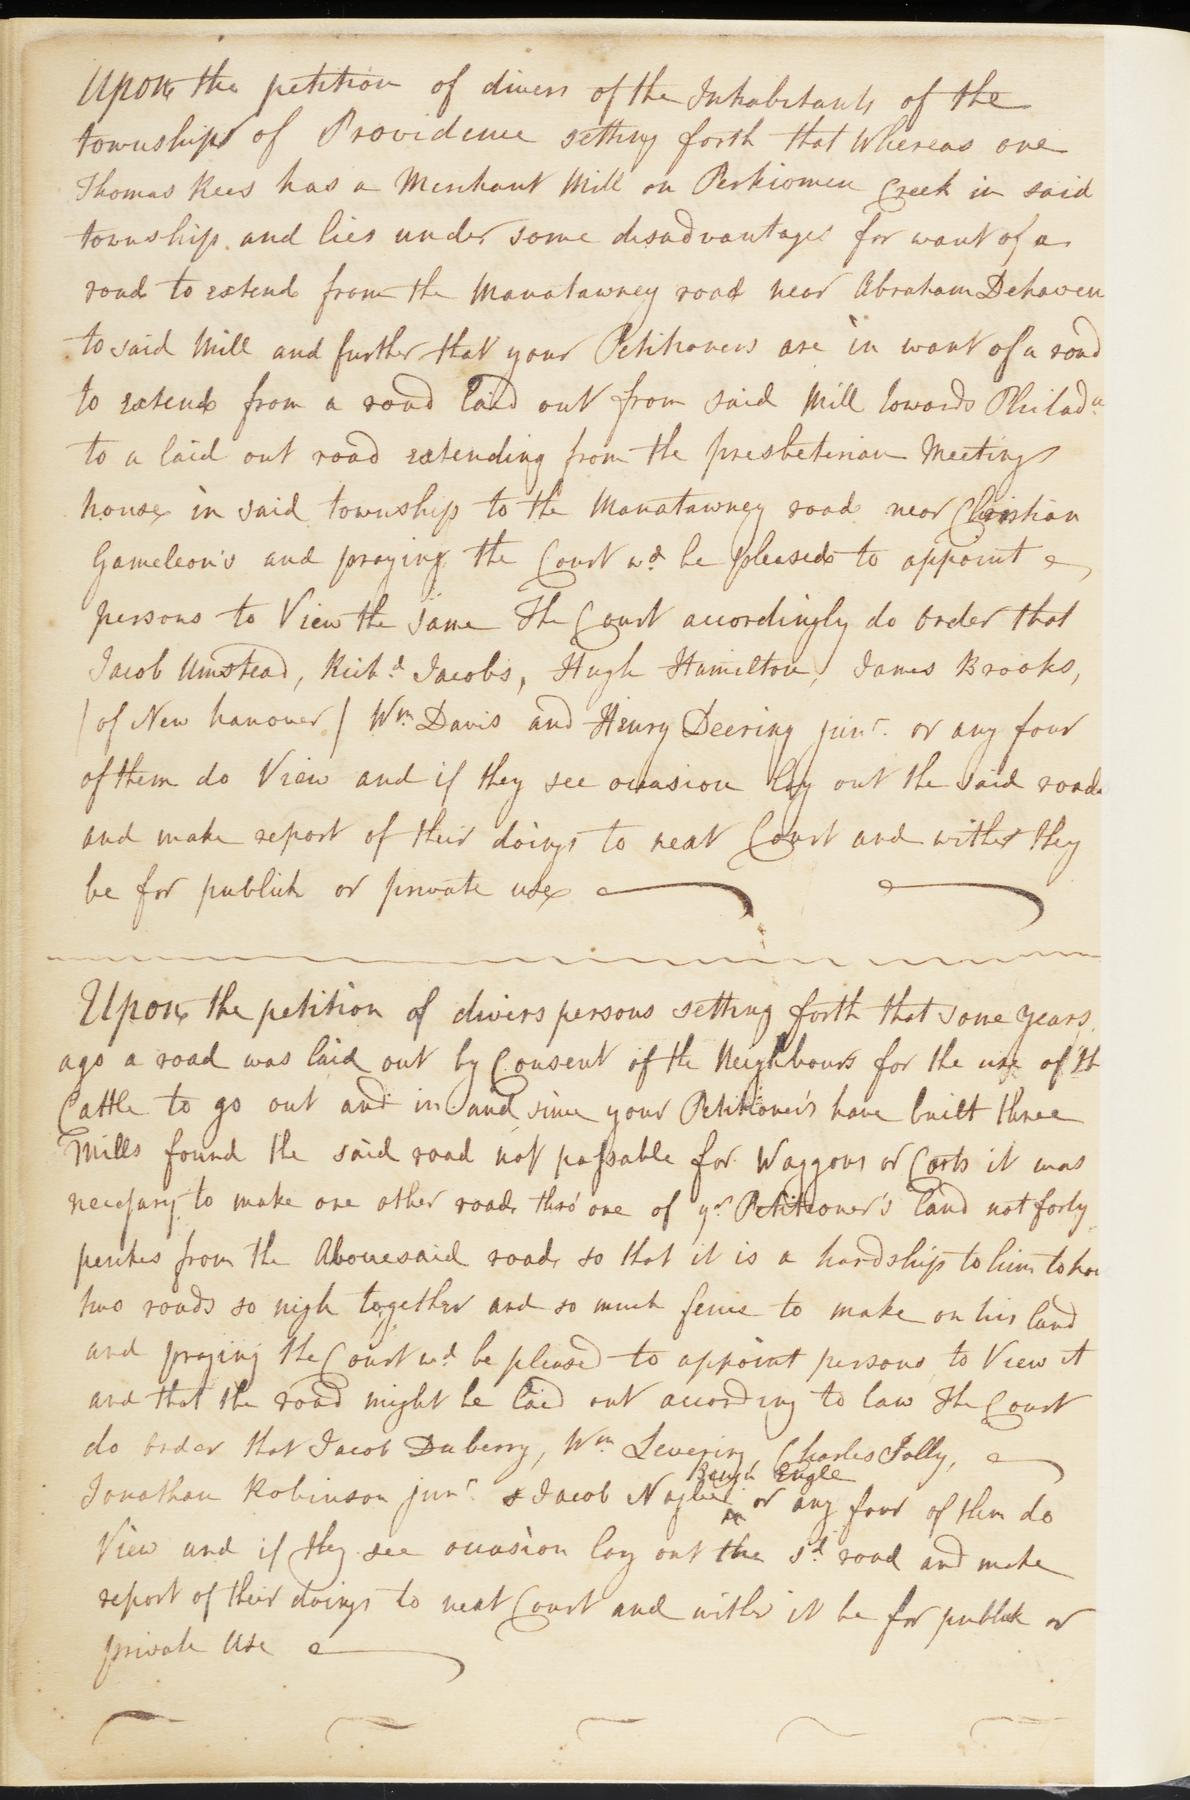 Upon the petition of divers of the Inhabitants of the
township of Providence setting forth that Whereas one
Thomas Rees has a Merchant Mill on Perkiomen Creek in said
township and lies under some disadvantages for want of a
road to extend from the Manatawney road near Abraham Dehaven
to said Mill and further that your Petitioners are in want of a road
to extend from a road laid out from said Mill towards Philada.
to a laid out road extending from the presbeterian Meeting
house in said township to the Manatawney road near Christian
Gameleon's and praying the Court wd. be pleased to appoint
persons to View the same The Court accordingly do order that
Jacob Umstead, Richd. Jacobs, Hugh Hamilton, James Brooks,
/ of New hanover / Wm. Davis and Henry Deering junr. or any four
of them do View and if they see occasion lay out the said roads
and make report of their doings to next Court and wither they
be for publick or private use
Upon the petition of divers persons setting forth that some years
ago a road was laid out by Consent of the Neighbours for the use of th
Cattle to go out and in and since your Petitioners have built three
Mills found the said road not passable for Waggons or Carts it was
necessary to make one other road thro' one of yr. Petitioner's land not forty
perches from the Abovesaid road so that it is a hardship to him to hav
two roads so nigh together and so much fence to make on his land
and praying the Court wd. be pleased to appoint persons to View it
and that the road might be laid out according to law The Court
do order that Jacob Duberry, Wm. Levering, Charles Jolly,
Benjn. Engle
Jonathan Robinson junr. & Jacob Naglee or any four of them do
View and if they see occasion lay out the sd. road and make
report of their doings to next Court and wither it be for publick or
private use